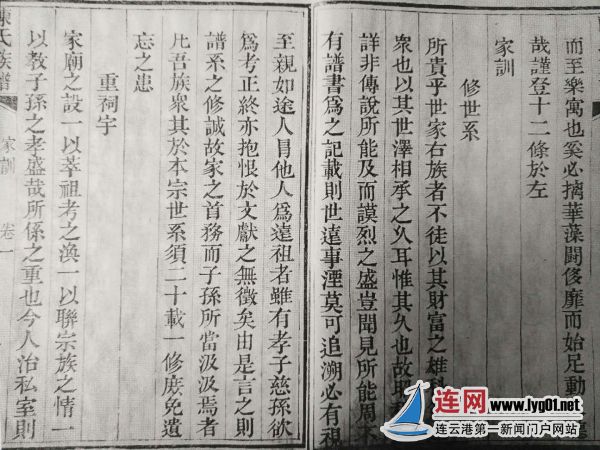 而至樂寓也奚必摛華藻鬪侈靡而始足動
哉謹登十二條於左
家訓
修世系
所貴乎世家右族者不徒以其財富之雄科
衆也以其世澤相承之久耳惟其久也故昭
詳非傳說所能及而謨烈之盛豈聞見所能周不
有譜書爲之記載則世遠事湮莫可追溯必有視
至親如途人冒他人爲遠祖者雖有孝子慈孫欲
爲考正終亦抱恨於文獻之無徵矣由是言之則
譜系之修誠故家之首務而子孫所當汲汲焉者
凡吾族衆其於本宗世系須二十載一修庶免遺
忘之患
重祠宇
家廟之設一以萃祖考之渙一以聯宗族之情一
以教子孫之孝盛哉所係之重也今人治私室則
陳氏族譜
家訓
卷一
连网
www.lyg01.net
连云港第一新闻门户网站